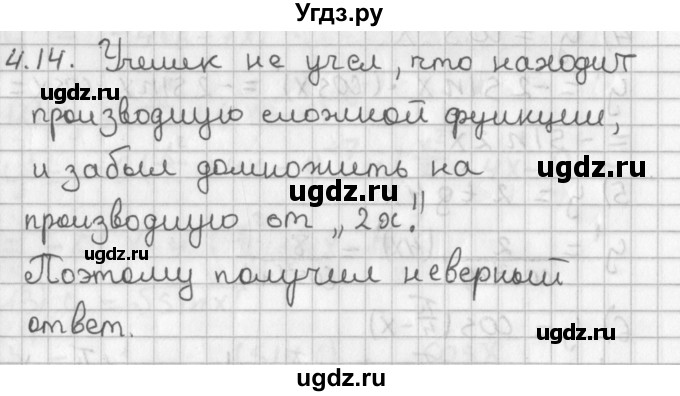 Угдз.ру
4.14. Ученик не учел, что находит
производную сложной функции,
и забыл домножить на
производную от „2x".
Поэтому получил неверный
ответ.
gdz.ru
ugdz.ru
ugdz.ru
ugdz.ru
ugdz.ru
ugdz.ru
ugdz.ru